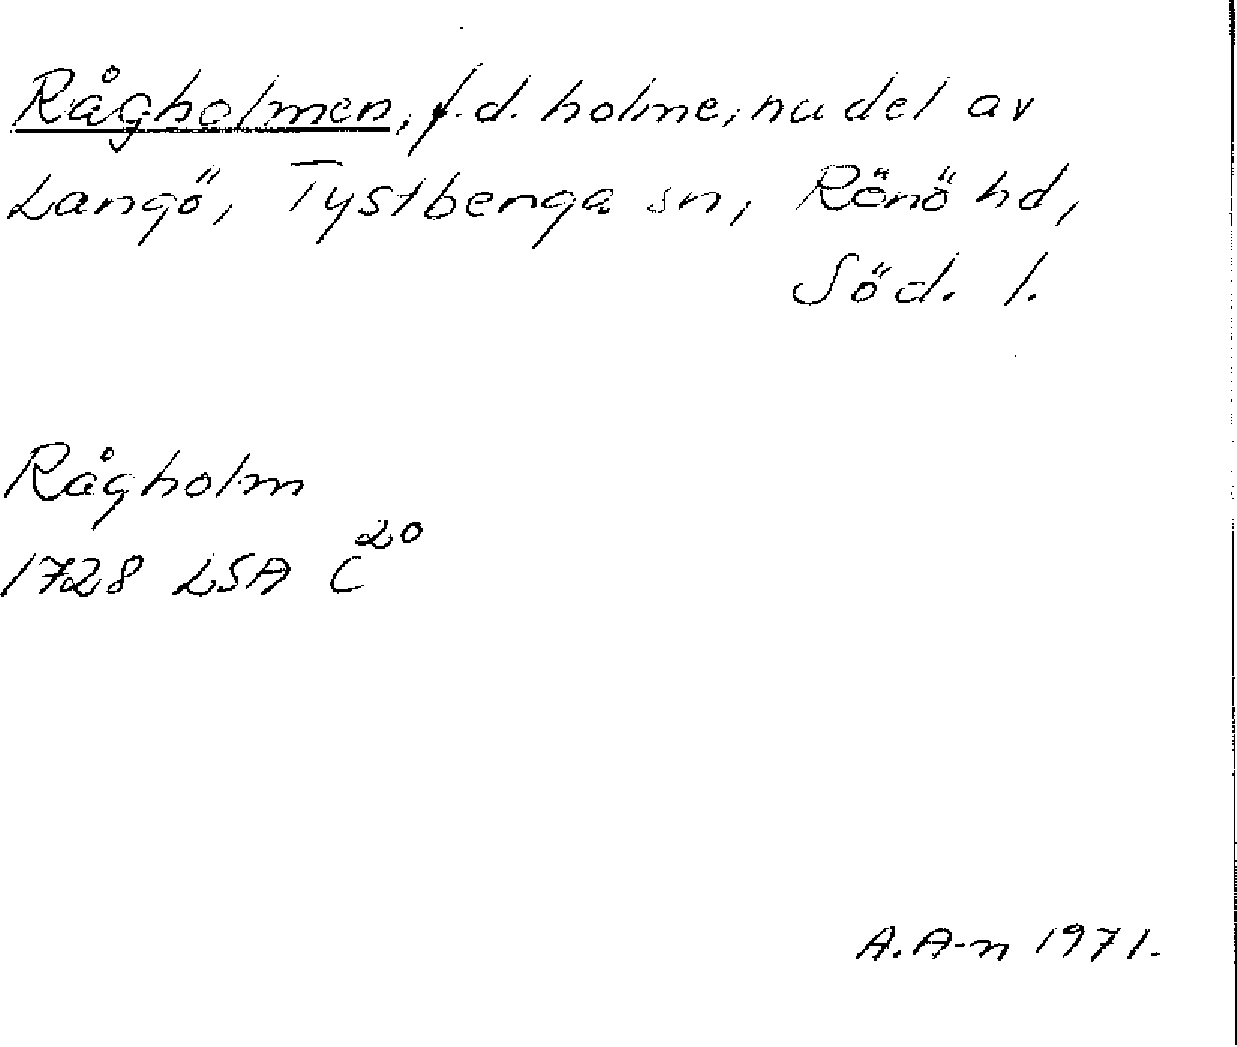 Rågholmen, f.d. holme, nu del av
Langö, Tystberga sn, Rönö hd,
Söd. l.
Rågholm
1728 LSA C²⁰
A. A-n 1971.